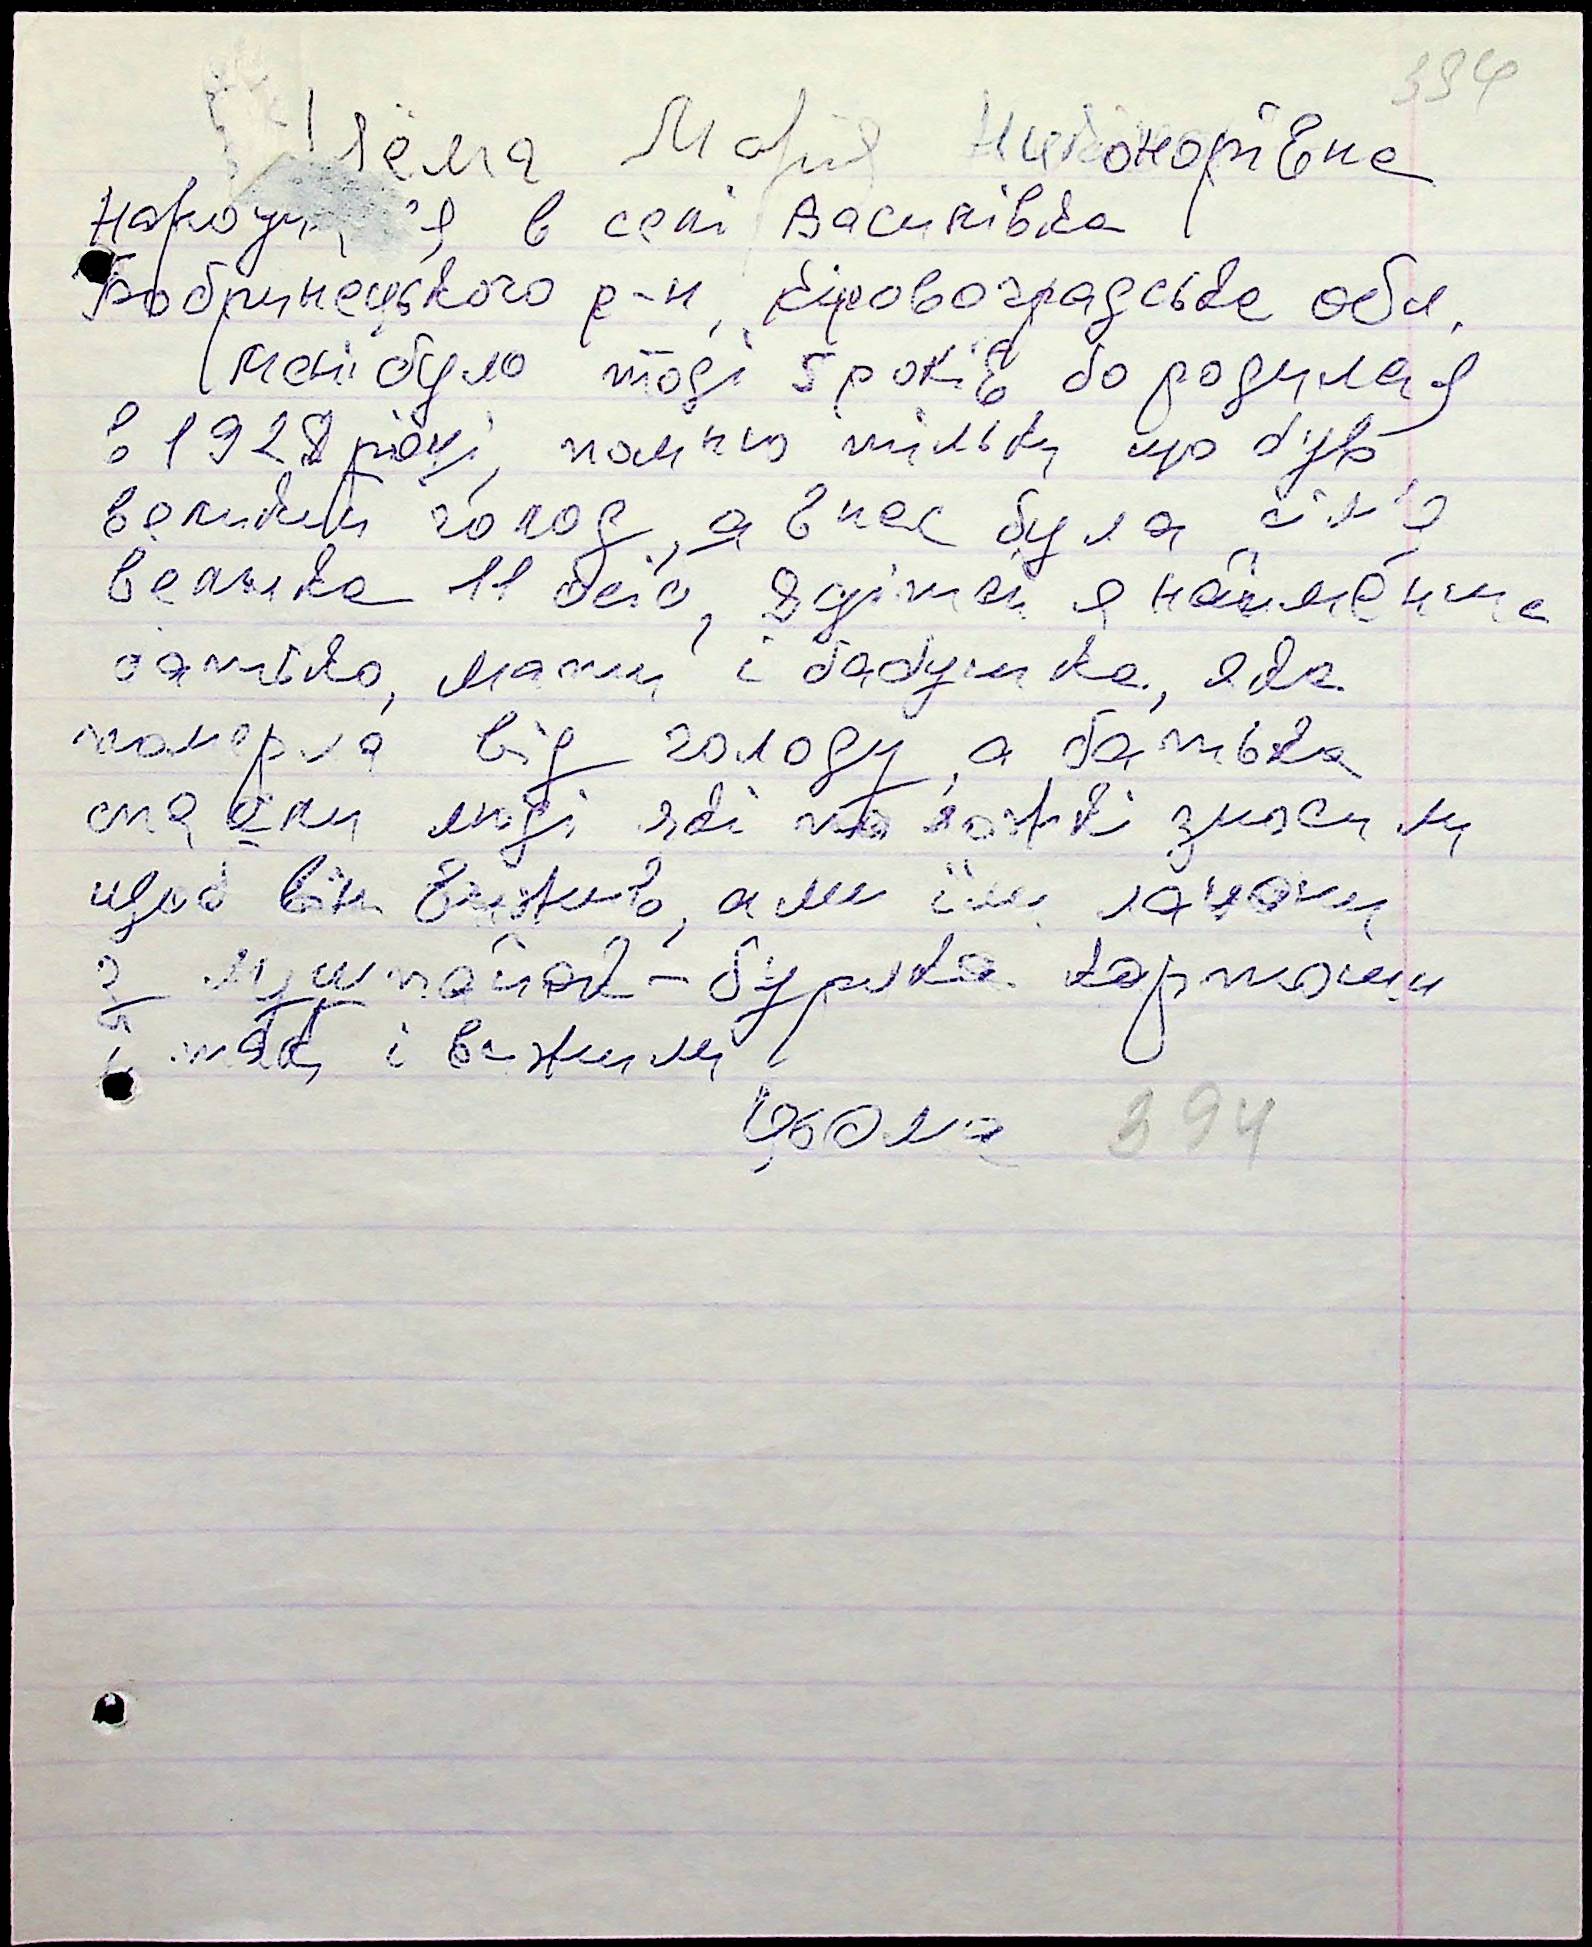 394
Цёма Марія Никонорівна
Народи 'я в селі Василівка
Бобринецького р-н, Кіровоградська обл.
Мені було тоді 5 років бо родилася
в 1928 році, помню тільки що був
великий голод, а в нас була сім'я
велика 11 осіб, 8 дітей я найменша
батько, мати і бабушка, яка
померла від голоду, а батька
спасали люді які по ложкі зносили
щоб він вижив, а ми їли
з лушпайок - буряка картошки
і так і вижили
Цьома 394